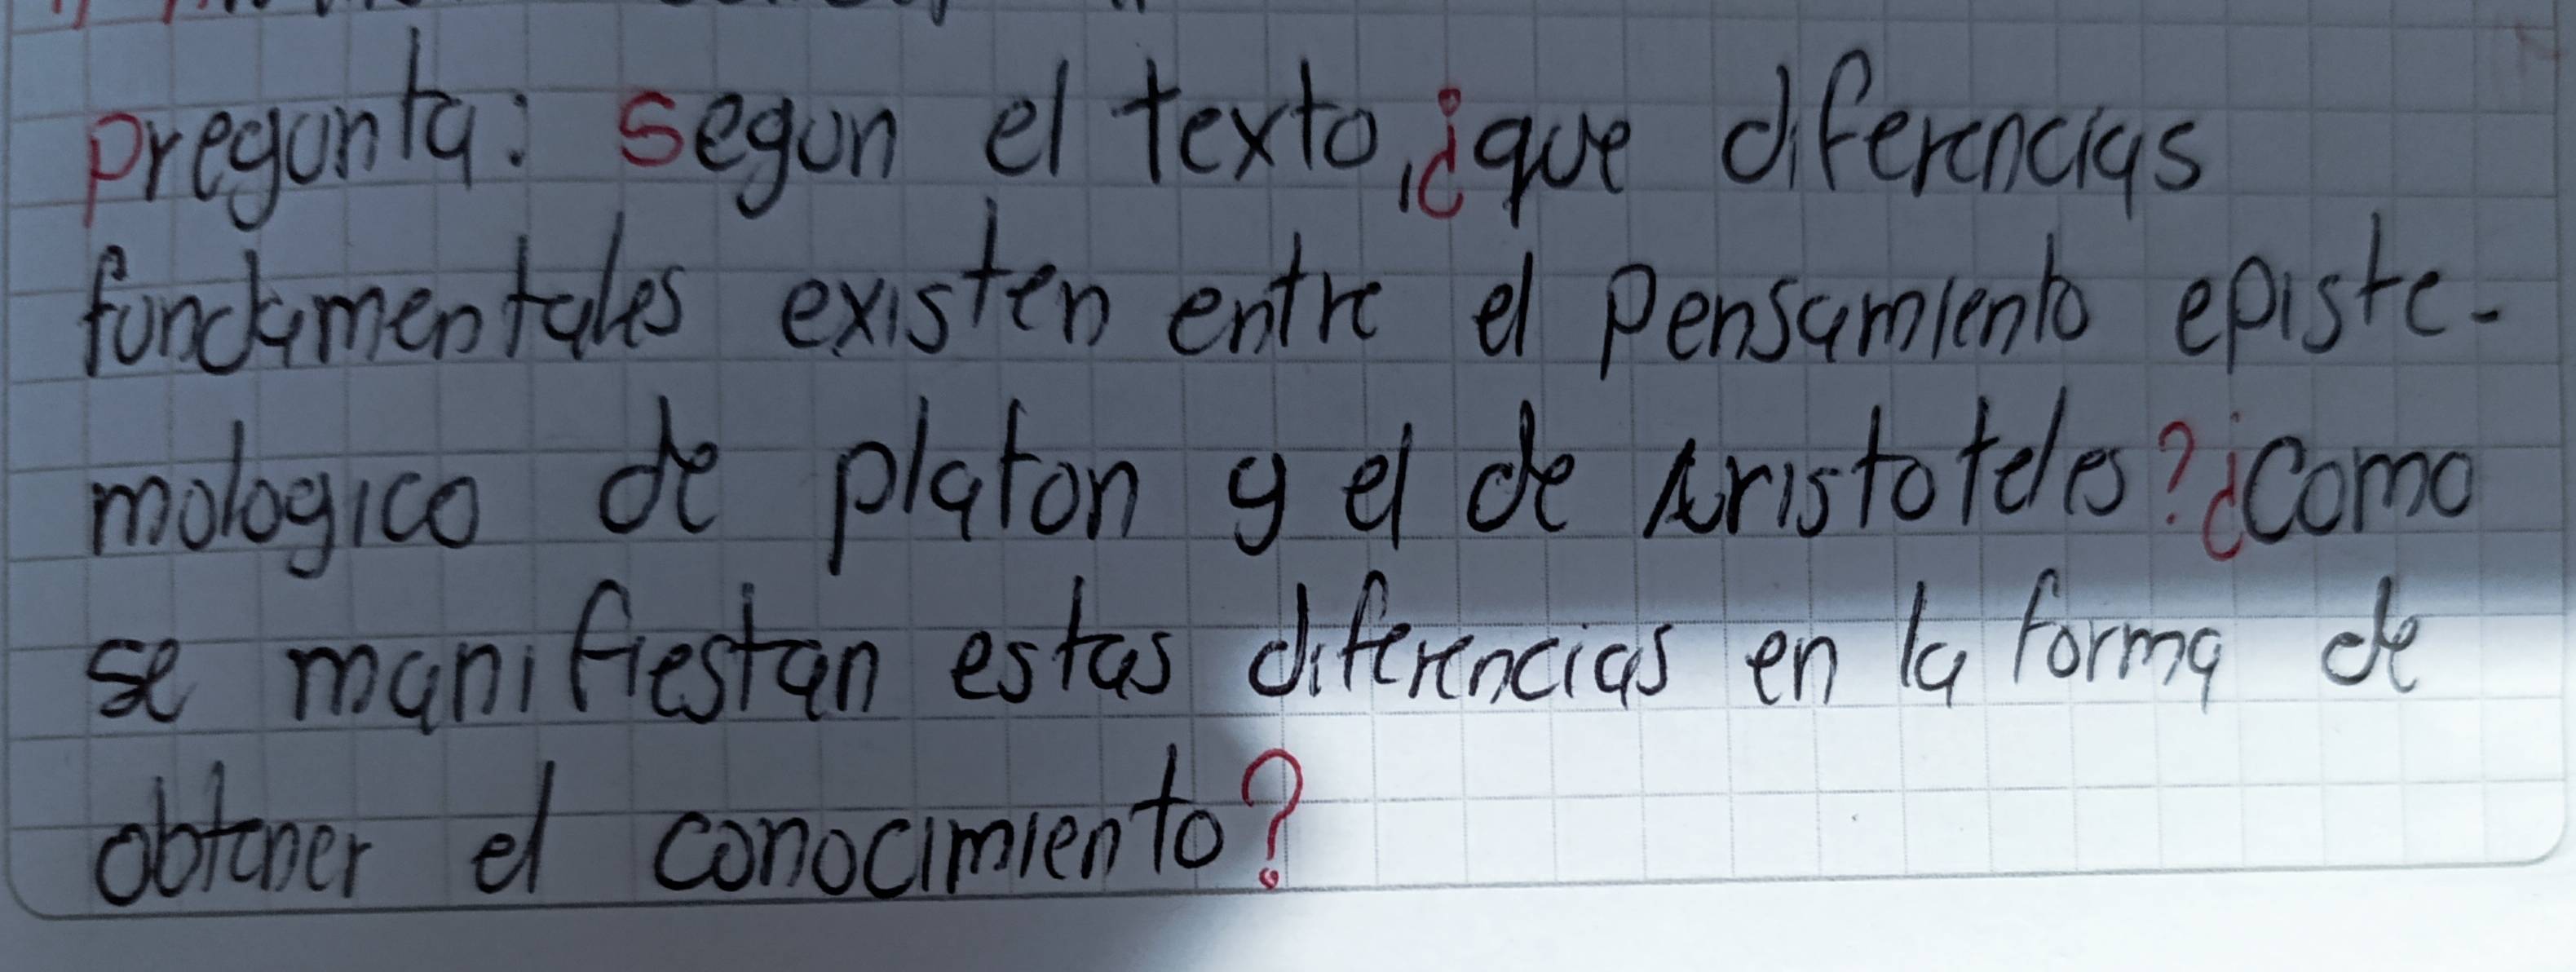 Pregunta: Segun el texto, ¿que diferencias
fundamentales existen entre el Pensamiento episte-
mologico de platon y el de Aristoteles? ¿Como
se manifiestan estas diferencias en la forma de
obtener el conocimiento?